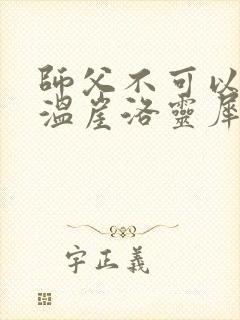 師父不可以
溫崖洛靈犀
字正義